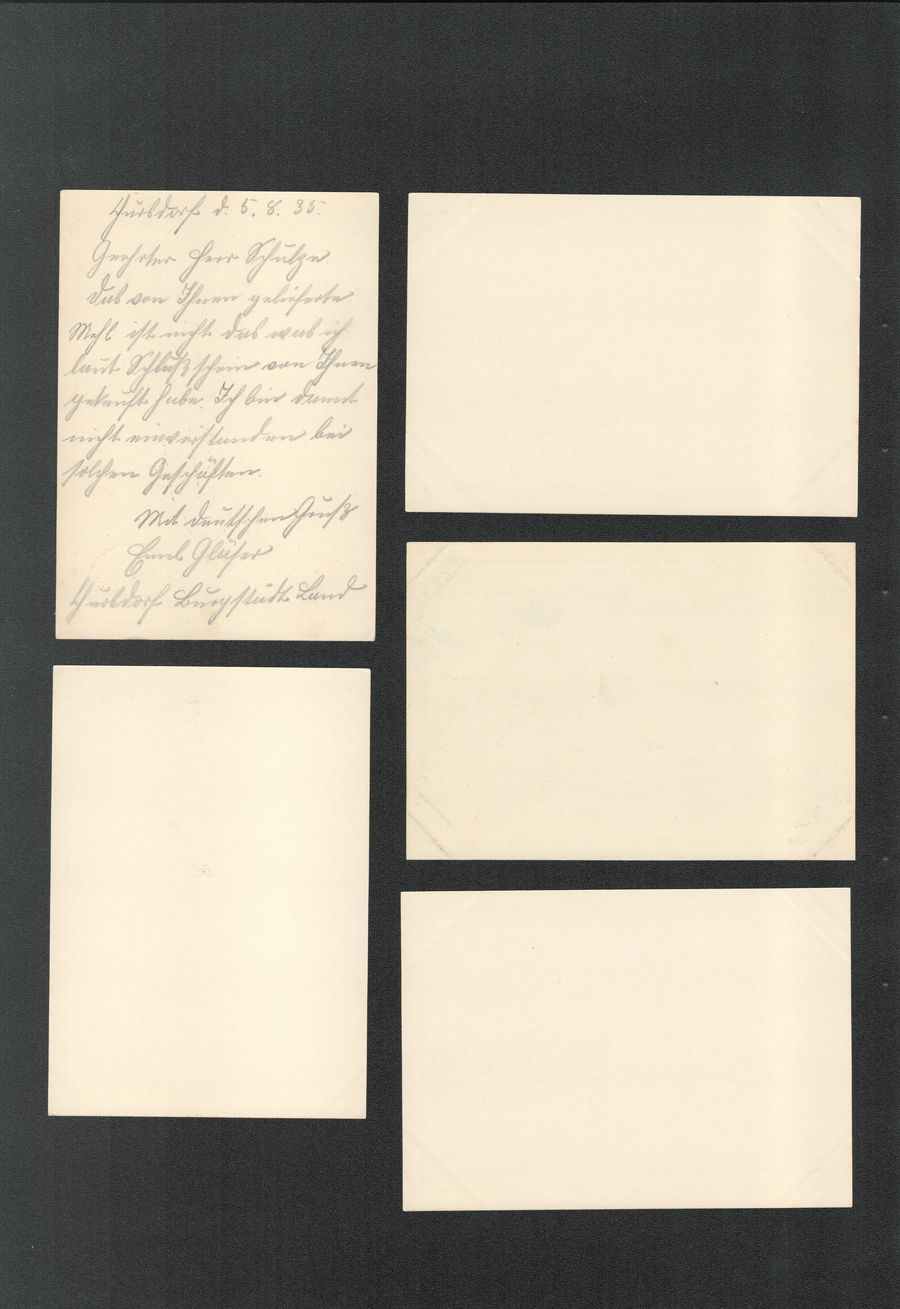 d. 5. 8. 35.
Geehrter Herr Schulze
Das von Ihnen gelieferte
Mehl ist nicht das was ich
laut Schlußschein von Ihnen
gekauft habe. Ich bin damit
nicht einverstanden bei
solchen Geschäften.
Mit deutschen Gruß
Emil Gläser
Burgstädt Land